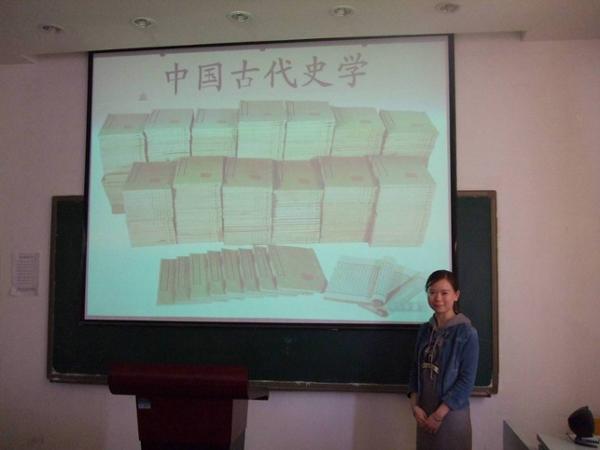 中国古代史学